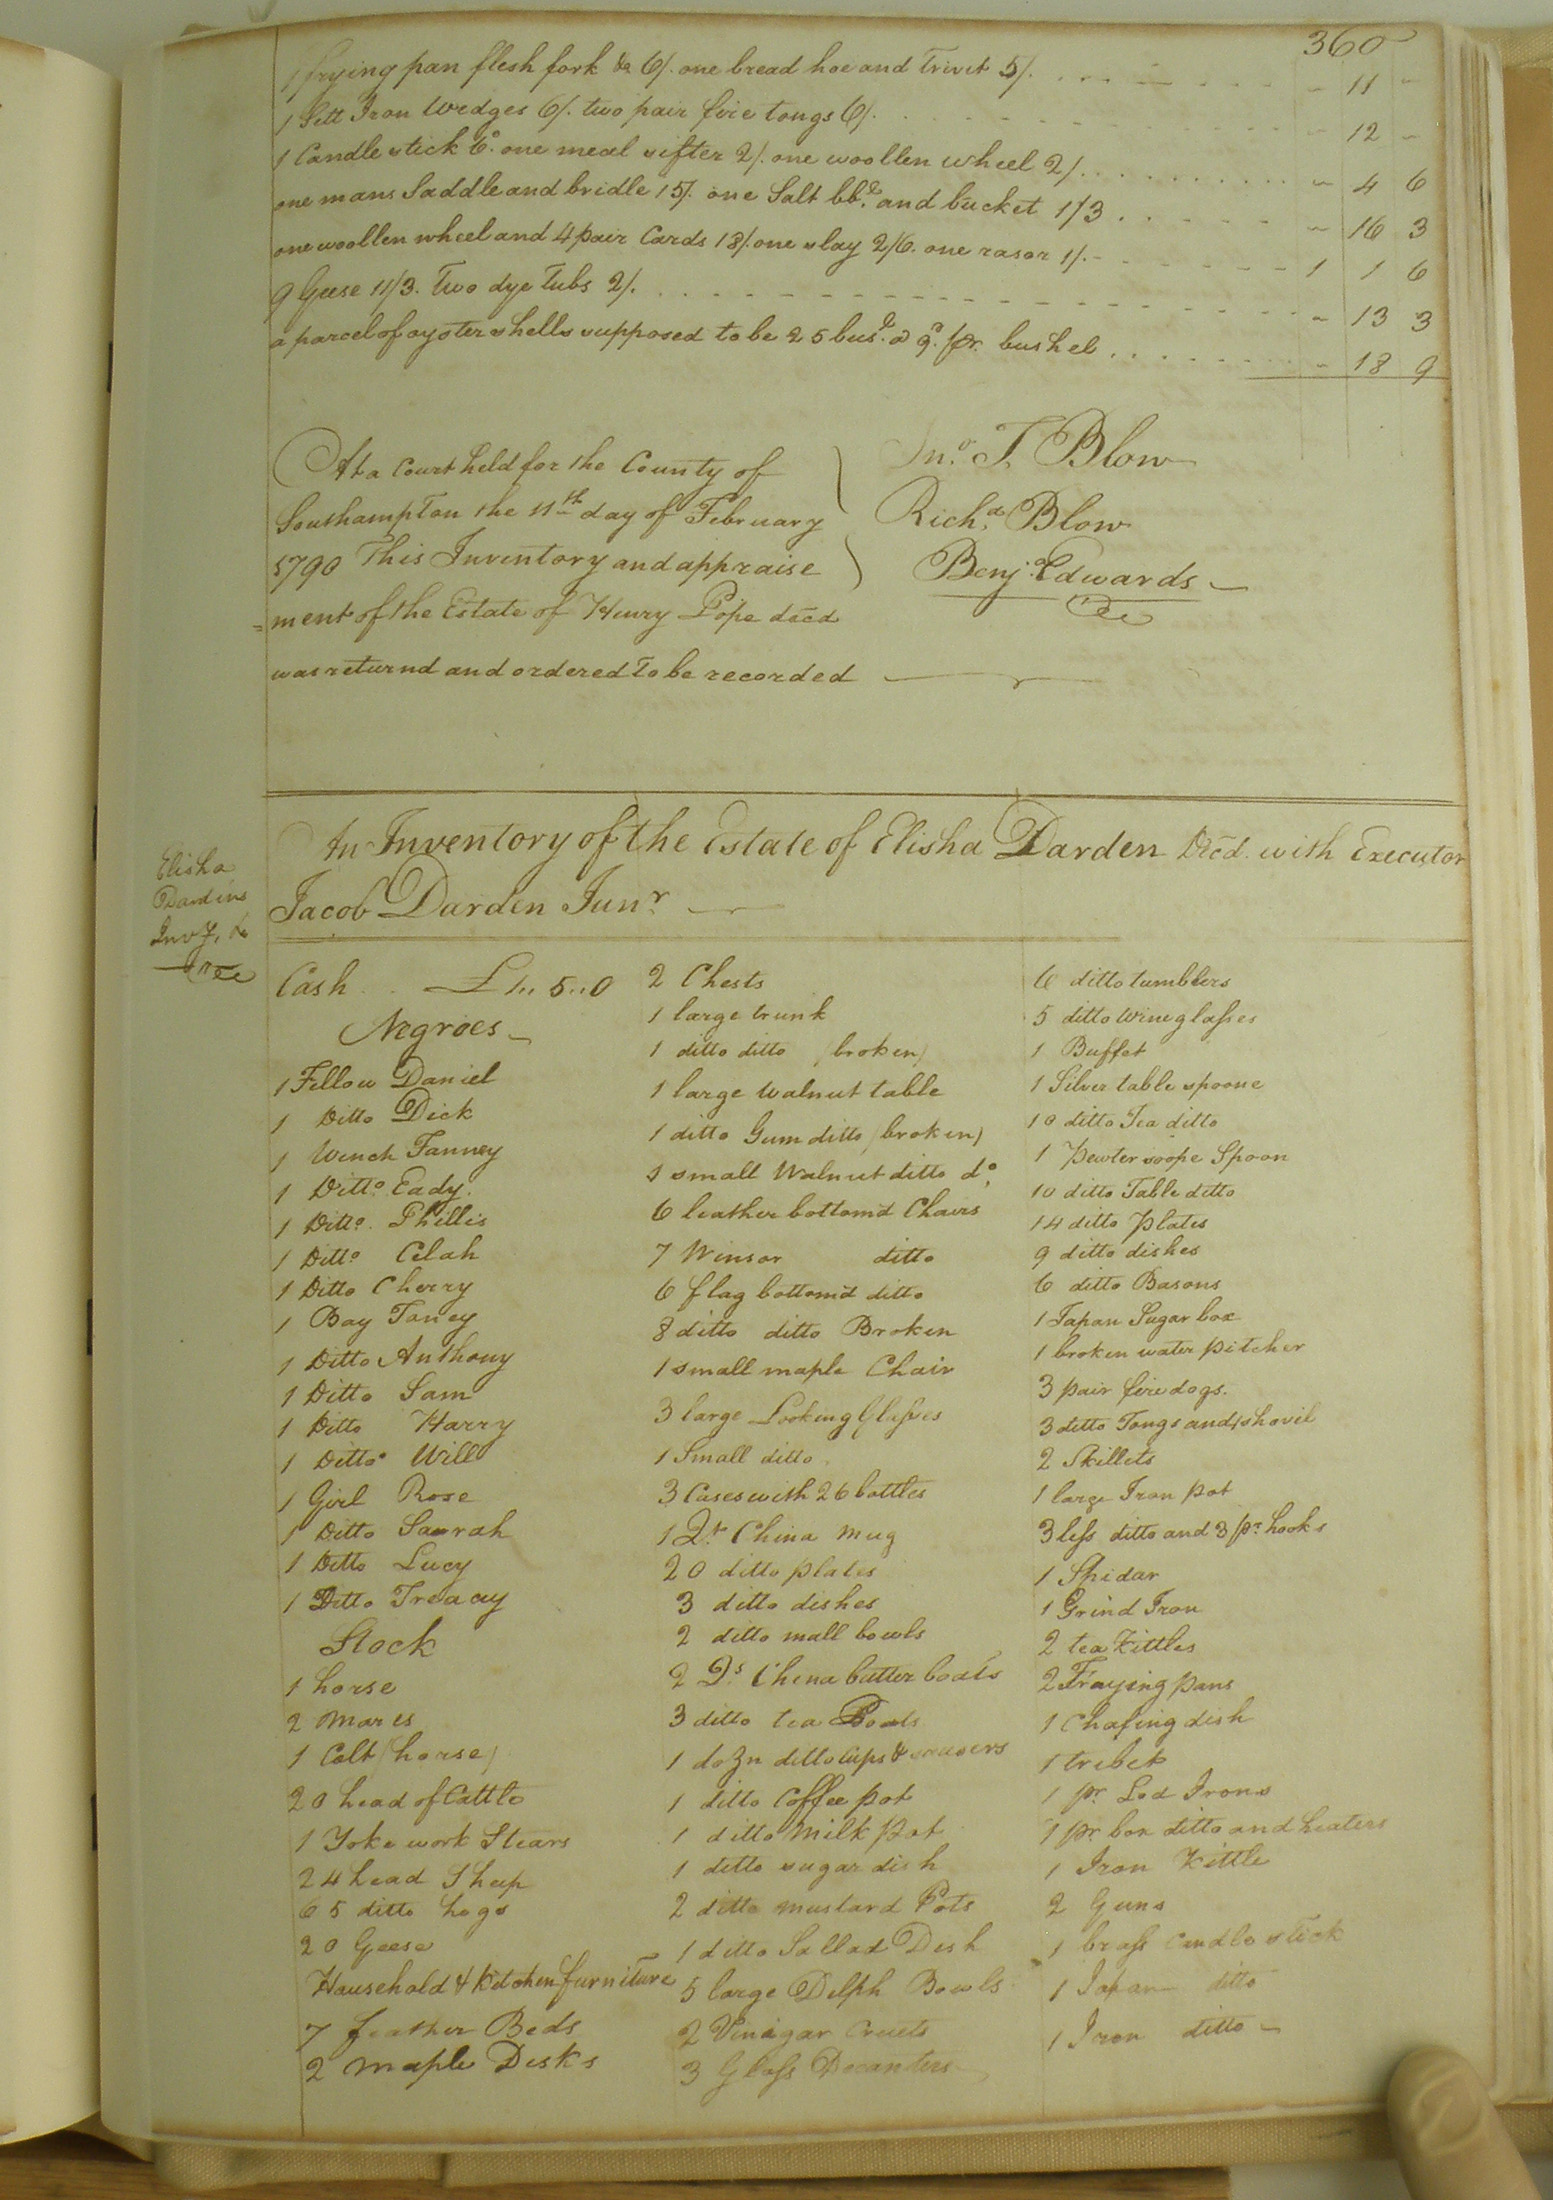 360
1 frying pan flesh fork &c 6/. one bread hoe and Trivit 5/. - 11 -
1 Sett Iron Wedges 6/. two pair fire tongs 6/. - 12 -
1 Candle stick 6d. one meal sifter 2/. one woollen wheel 2/. - 4 6
one mans Saddle and bridle 15/. one Salt bbl. and bucket 1/3 - 16 3
one woollen wheel and 4 pair Cards 18/. one slay 2/6. one rasor 1/. 1 1 6
9 Geese 11/3. Two dye Tubs 2/. - 13 3
a parcel of oyster shells supposed to be 25 busl. @ 9d. pr. bushel - 18 9
At a Court held for the County of
Southampton the 11th day of February
1790 This Inventory and appraise
=ment of the Estate of Henry Pope decd
was returnd and ordered to be recorded
Jno. T. Blow
Richd. Blow
Benj. Edwards
Elisha
Dardens
Invy. &c
An Inventory of the Estate of Elisha Darden Decd. with Executor
Jacob Darden Junr.
Cash £1..5..0
Negroes
1 Fellow Daniel
1 Ditto Dick
1 Wench Fanney
1 Ditto Eady.
1 Ditto. Phillis
1 Ditto Celah
1 Ditto Cherry
1 Boy Toney
1 Ditto Anthony
1 Ditto Sam
1 Ditto Harry
1 Ditto Will
1 Girl Rose
1 Ditto Saurah
1 Ditto Lucy
1 Ditto Treacy
Stock
1 horse
2 Mares
1 Colt (horse)
20 head of Cattle
1 Yoke work Stears
24 head Sheep
65 ditto hogs
20 Geese
Household & Kitchen furniture
7 feather Beds
2 maple Desks
2 Chests
1 large trunk
1 ditto ditto (broken)
1 large walnut table
1 ditto Gum ditto (broken)
1 small Walnut ditto do.
6 leather bottomd Chairs
7 Winsor ditto
6 flag bottomd ditto
8 ditto ditto Broken
1 small maple Chair
3 large Looking Glasses
1 Small ditto
3 Cases with 26 bottles
1 Qt. China mug
20 ditto plates
3 ditto dishes
2 ditto mall bowls
2 Ds. China butter boats
3 ditto tea Poots
1 dozn ditto Cups & saucers
1 ditto Coffee pot
1 ditto Milk pot
1 ditto sugar dish
2 ditto mustard Pots
1 ditto Sallad Dish
5 large Delph Bowls
2 Vinagar Cruets
3 Glass Decanters
6 ditto tumblers
5 ditto Wine glasses
1 Buffet
1 Silver table spoone
10 ditto Tea ditto
1 Pewter soope Spoon
10 ditto Table ditto
14 ditto plates
9 ditto dishes
6 ditto Basons
1 Japan Sugar box
1 broken water pitcher
3 pair fire dogs.
3 ditto Tongs and shovil
2 Skillets
1 large Iron pot
3 less ditto and 3 pr. hooks
1 Spidar
1 Grind Iron
2 tea Kittles
2 Fraying pans
1 Chafing dish
1 tribet
1 pr. Sad Irons
1 pr. box ditto and heaters
1 Iron Kittle
2 Guns
1 brass candle stick
1 Japan ditto
1 Iron ditto